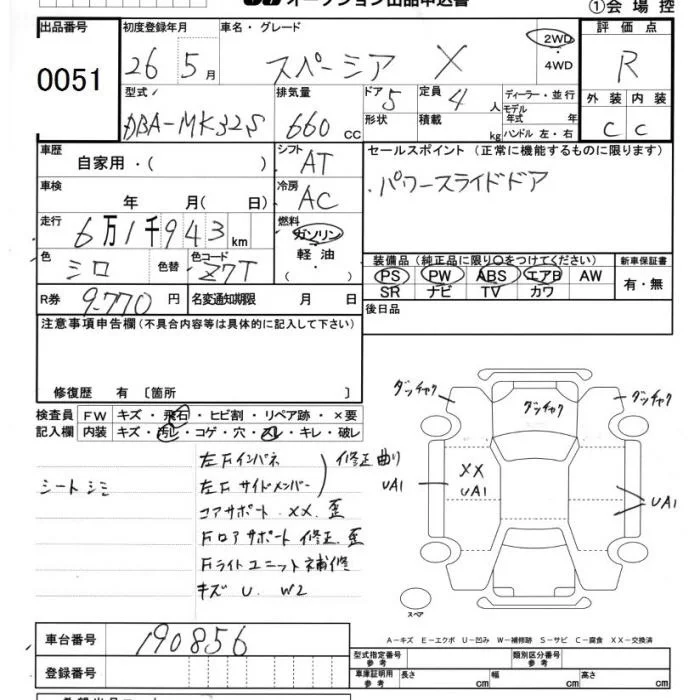 オークション出品申込書
①会場控
出品番号
0051
初度登録年月
26 5月
車名・グレード
スペーシア X
2WD
・
4WD
評価点
R
型式
DBA-MK32S
排気量
660 cc
ドア 5
形状
定員 4 人
積載 kg
ディーラー・並行
モデル年式 年
ハンドル 左・右
外装 内装
C C
車歴
自家用・( )
シフト AT
セールスポイント (正常に機能するものに限ります)
パワースライドドア
車検
年 月( 日)
冷房 AC
走行
6万1千943 km
燃料
ガソリン
軽油
( ・ )
色
シロ
色替
色コード
Z7T
装備品 (純正品に限り〇をつけてください)
PS PW ABS エアB AW
SR ナビ TV カワ
新車保証書
有・無
R券 9,770 円
名変通知期限 月 日
後日品
注意事項申告欄 (不具合内容等は具体的に記入して下さい)
修復歴 有 〔箇所 〕
検査員
記入欄
FW キズ・飛石・ヒビ割・リペア跡・×要
内装 キズ・汚レ・コゲ・穴・スレ・キレ・破レ
シートシミ
左Fインパネ
左Fサイドメンバー
修正曲り
コアサポート XX.歪
Fロアサポート 修正.歪
Fライトユニット補修
キズ U. W2
ダッチャク
ダッチャク
ダッチャク
UA1
XX
UA1
UA1
スペア
A-キズ E-エクボ U-凹み W-補修跡 S-サビ C-腐食 XX-交換済
車台番号
190856
登録番号
型式指定番号
参考
類別区分番号
参考
車庫証明用
参考
長さ cm
幅 cm
高さ cm